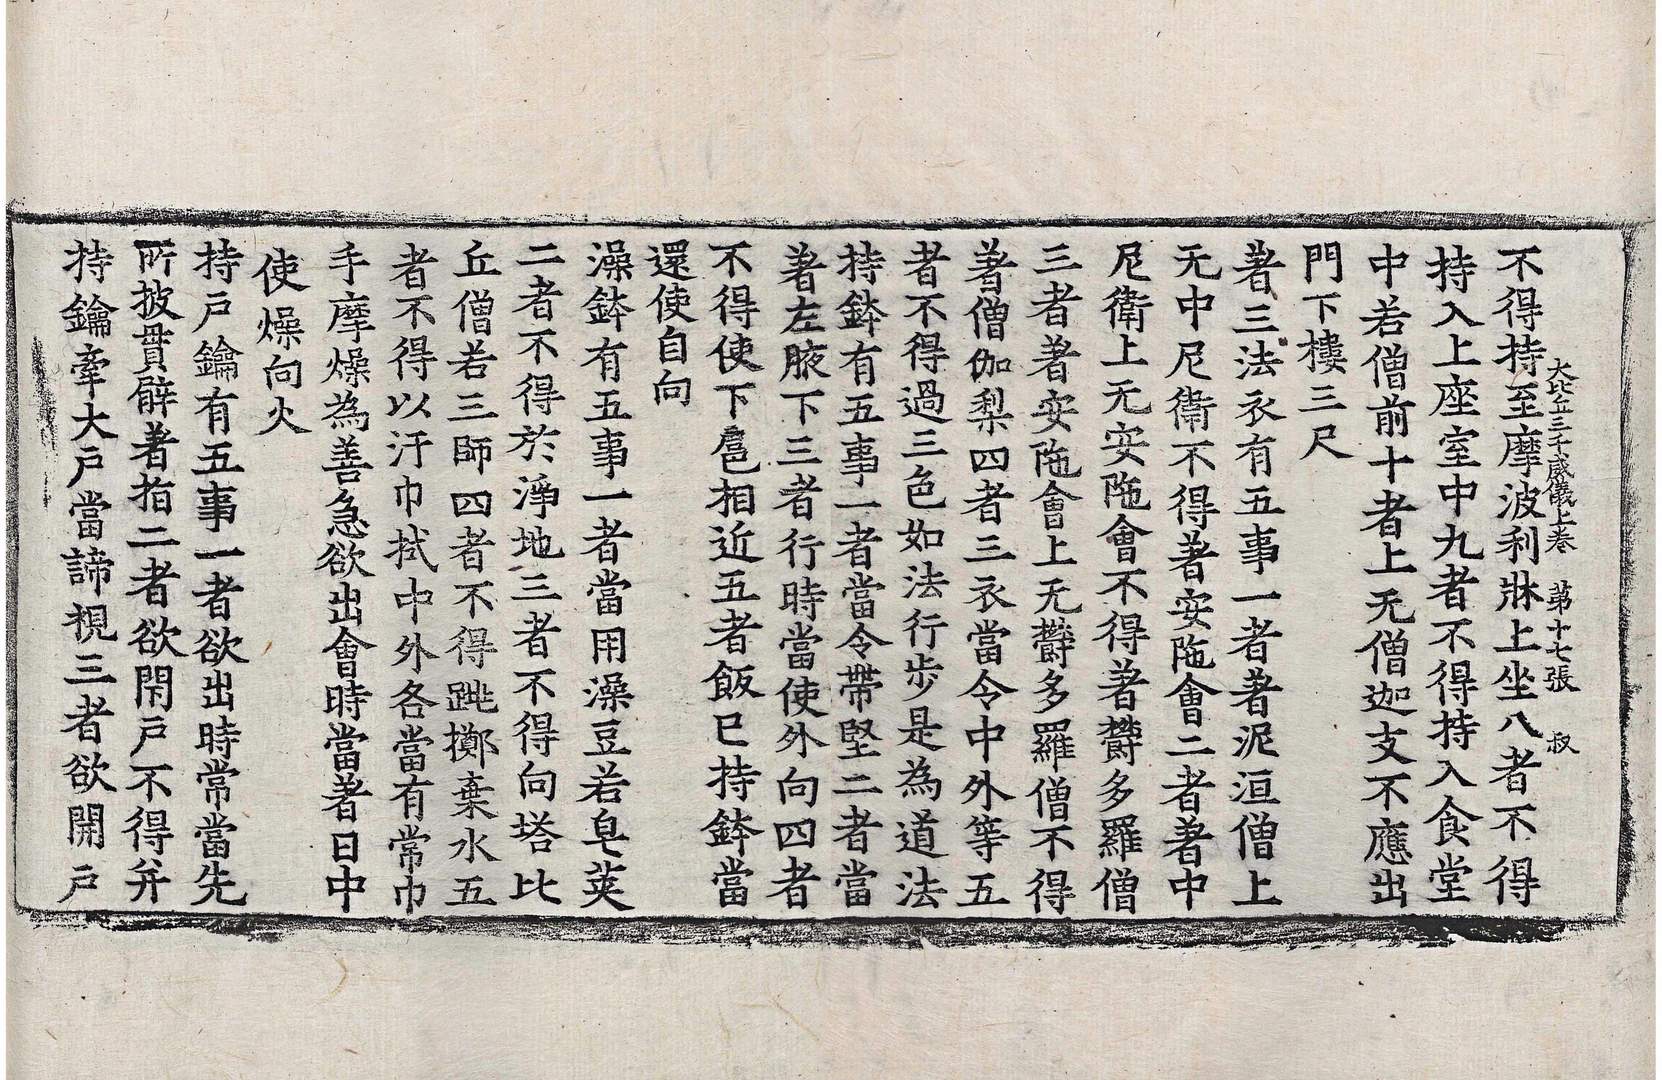 大比丘三千威儀上卷 第十七張 叔
不得持至摩波利牀上坐八者不得
持入上座室中九者不得持入食堂
中若僧前十者上无僧迦支不應出
門下樓三尺
著三法衣有五事一者著泥洹僧上
无中尼衛不得著安陁會二者著中
尼衛上无安陁會不得著欝多羅僧
三者著安陁會上无欝多羅僧不得
著僧伽梨四者三衣當令中外等五
者不得過三色如法行步是為道法
持鉢有五事一者當令帶堅二者當
著左腋下三者行時當使外向四者
不得使下邑相近五者飯已持鉢當
還使自向
澡鉢有五事一者當用澡豆若皂莢
二者不得於淨地三者不得向塔比
丘僧若三師四者不得跳擲棄水五
者不得以汙巾拭中外各當有常巾
手摩燥為善急欲出會時當著日中
使燥向火
持戶鑰有五事一者欲出時常當先
所披貫辟著指二者欲閇戶不得并
持鑰牽大戶當諦視三者欲開戶